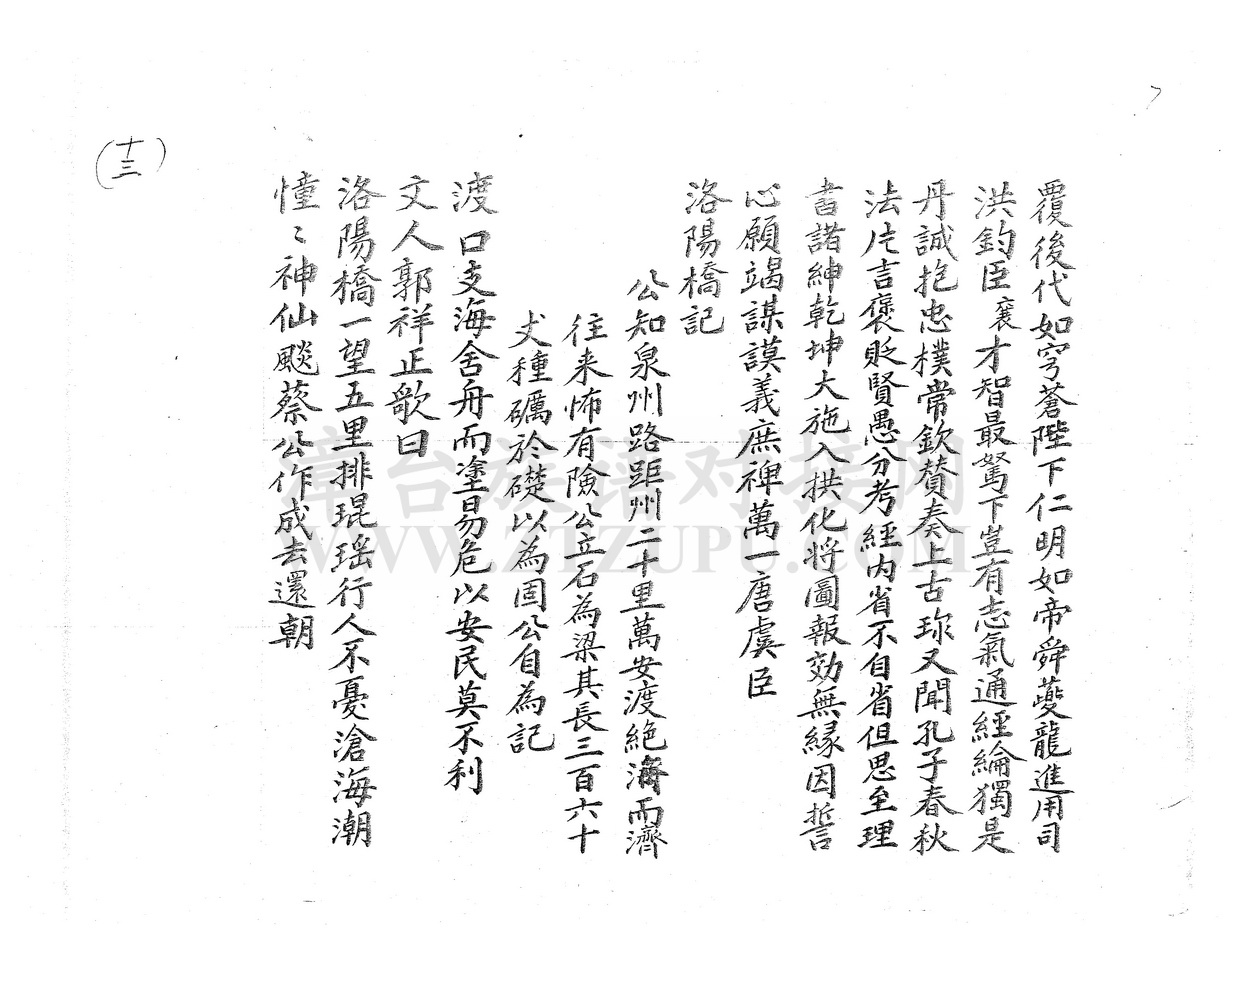 覆後代如穹蒼陛下仁明如帝舜夔龍進用司
洪鈞臣襄才智最駑下豈有志氣通經綸獨是
丹誠抱忠樸常欽贊奏上古琭又聞孔子春秋
法片言褒貶賢愚分考經內省不自省但思至理
書諸紳乾坤大施入拱化將圖報効無緣因誓
心願竭謀謨義庶裨萬一唐虞臣
洛陽橋記
公知泉州路距州二十里萬安渡絶濟而濟
往来怖有險公立石為梁其長三百六十
丈種礪於礎以為固公自為記
渡口支海舍舟而塗昜危以安民莫不利
文人郭祥正歌曰
洛陽橋一望五里排琨瑶行人不憂滄海潮
憧〻神仙飈蔡公作成去還朝
(十三)
章台族谱对接网
WWW.ZTZUPU.COM